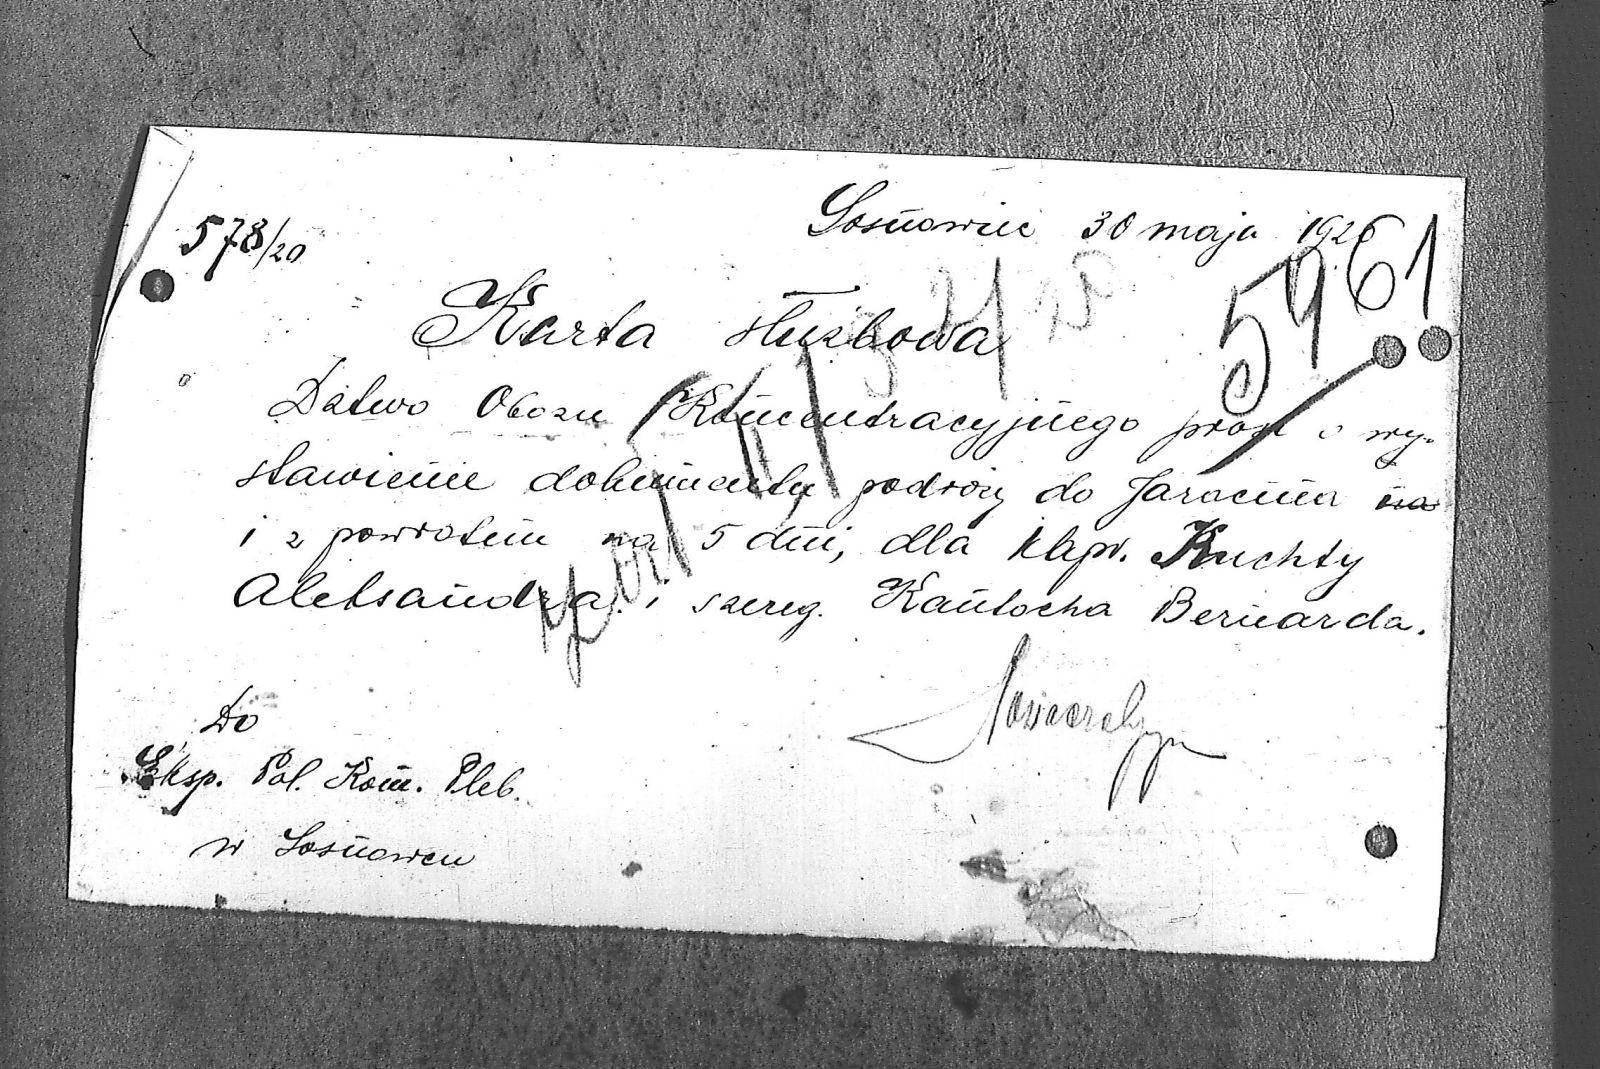 578/20
Sosnowiec 30 maja 1920
5961
Karta służbowa
Dztwo Obozu Koncentracyjnego prosi o wy-
stawienie dokumentu podróży do Jarocina na
i z powrotem na 5 dni, dla kapr. Kuchty
Aleksandra i szereg. Kantocha Bernarda.
Do
Eksp. Pol. Kom. Pleb.
w Sosnowcu